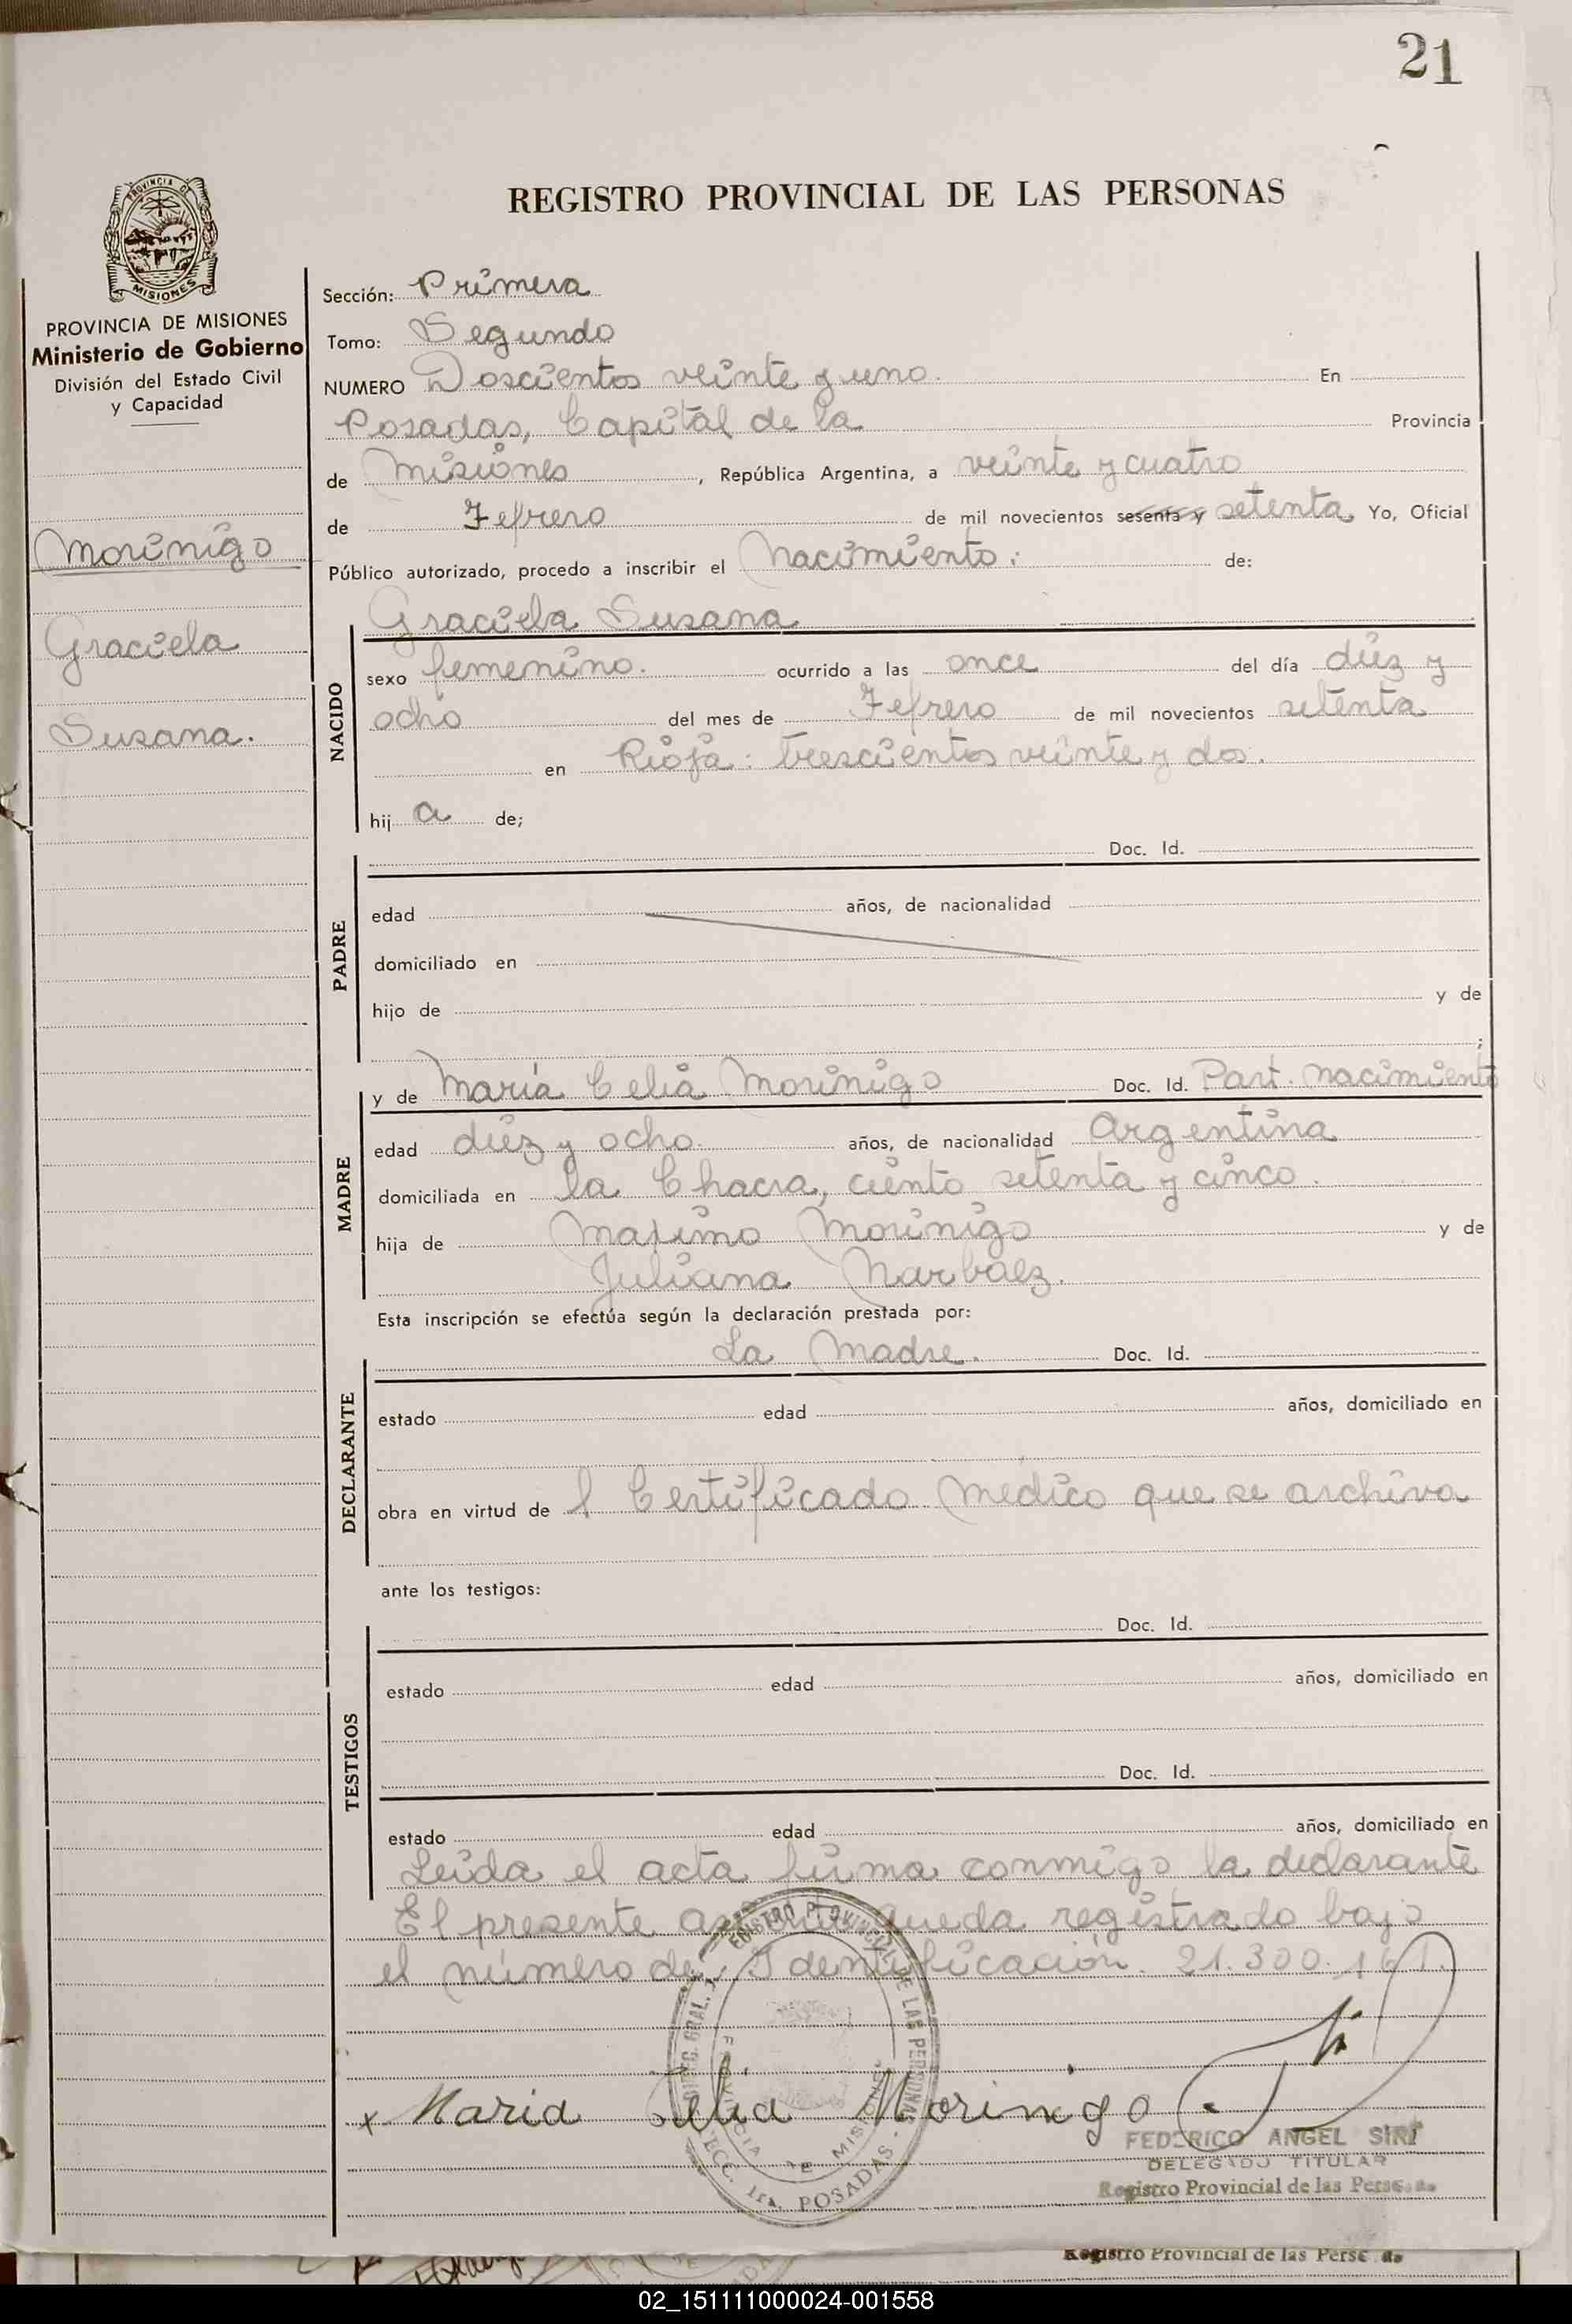 21
REGISTRO PROVINCIAL DE LAS PERSONAS
PROVINCIA DE MISIONES
PROVINCIA DE MISIONES
Ministerio de Gobierno
División del Estado Civil
y Capacidad
Morinigo
Graciela
Susana.
Sección: Primera
Tomo: Segundo
NUMERO Doscientos veinte y uno. En
Posadas, Capital de la Provincia
de Misiones, República Argentina, a veinte y cuatro
de Febrero de mil novecientos sesenta y setenta Yo, Oficial
Público autorizado, procedo a inscribir el Nacimiento: de:
Graciela Susana
NACIDO
sexo femenino. ocurrido a las once del día diez y
ocho del mes de Febrero de mil novecientos setenta
en Rioja: trescientos veinte y dos.
hij a de;
Doc. Id.
PADRE
edad años, de nacionalidad
domiciliado en
hijo de y de
;
y de María Celia Morinigo Doc. Id. Part. nacimiento
MADRE
edad diez y ocho. años, de nacionalidad Argentina
domiciliada en la Chacra, ciento setenta y cinco.
hija de Maximo Morinigo y de
Juliana Narbaez.
Esta inscripción se efectúa según la declaración prestada por:
La Madre. Doc. Id.
DECLARANTE
estado edad años, domiciliado en
obra en virtud de l Certificado Médico que se archiva
ante los testigos:
Doc. Id.
TESTIGOS
estado edad años, domiciliado en
Doc. Id.
estado edad años, domiciliado en
Leida el acta firma conmigo la declarante
El presente asiento queda registrado bajo
el número de Identificación. 21.300.161.
REGISTRO PROVINCIAL DE LAS PERSONAS
PROVINCIA DE MISIONES
SECC. 1ra. POSADAS
x Maria Celia Morinigo
FEDERICO ANGEL SIRI
DELEGADO TITULAR
Registro Provincial de las Personas
Registro Provincial de las Personas
02_151111000024-001558